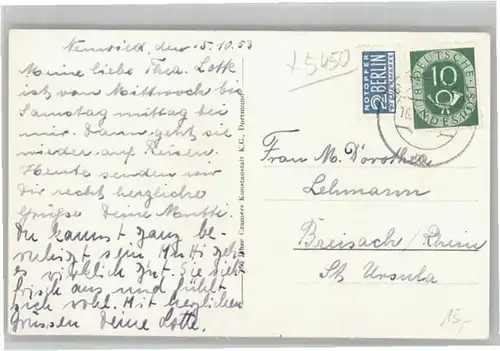 Neuwied, den 15.10.53
Meine liebe Thea. Lotte
ist von Mittwoch bis
Samstag mittag bei
mir. Dann geht sie
wieder auf Reisen.
Heute senden wir
Dir recht herzliche
Grüße Deine Mutti.
Du kannst ganz be-
ruhigt sein Mutti geht
es wirklich gut. Sie sieht
frisch aus und fühlt
sich wohl. Mit herzlichen
Grüssen Deine Lotte.
Cramers Kunstanstalt K.G., Dortmund
+ 5450
NOTOPFER
2 BERLIN
STEUERMARKE
DEUTSCHE BUNDESPOST
10
Frau M. Dorothea
Lehmann
Breisach/Rhein
St. Ursula
15,-